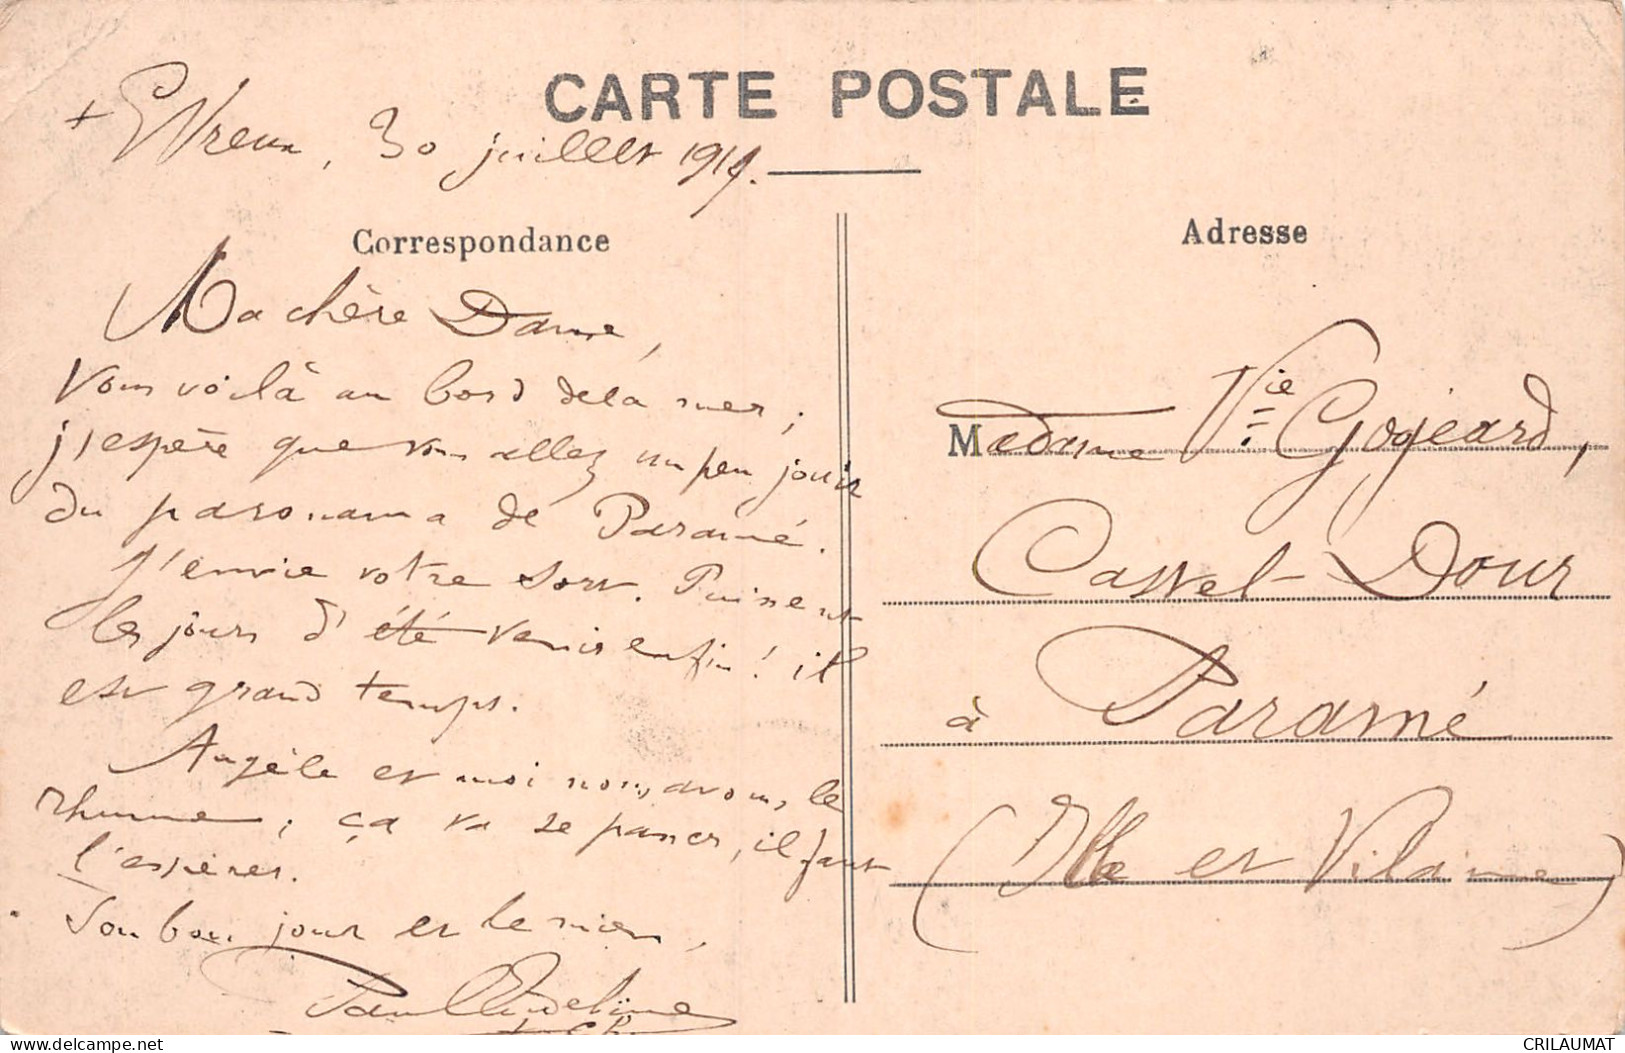 CARTE POSTALE
+ Evreux, 30 juillet 1914.
Correspondance
Ma chère Dame,
Vous voilà au bord de la mer ;
j'espère que vous allez un peu jouir
du panorama de Paramé.
J'envie votre sort. Puissent
les jours d'été venir enfin ! il
est grand temps.
Angèle et moi nous avons le
rhume ; ça va se passer, il faut
l'espérer.
Son bonjour et le mien,
Paul
Adresse
Madame Vie Gogeard,
Castel-Dour
à Paramé
(Ille et Vilaine)
delcampe.net
CRILAUMAT